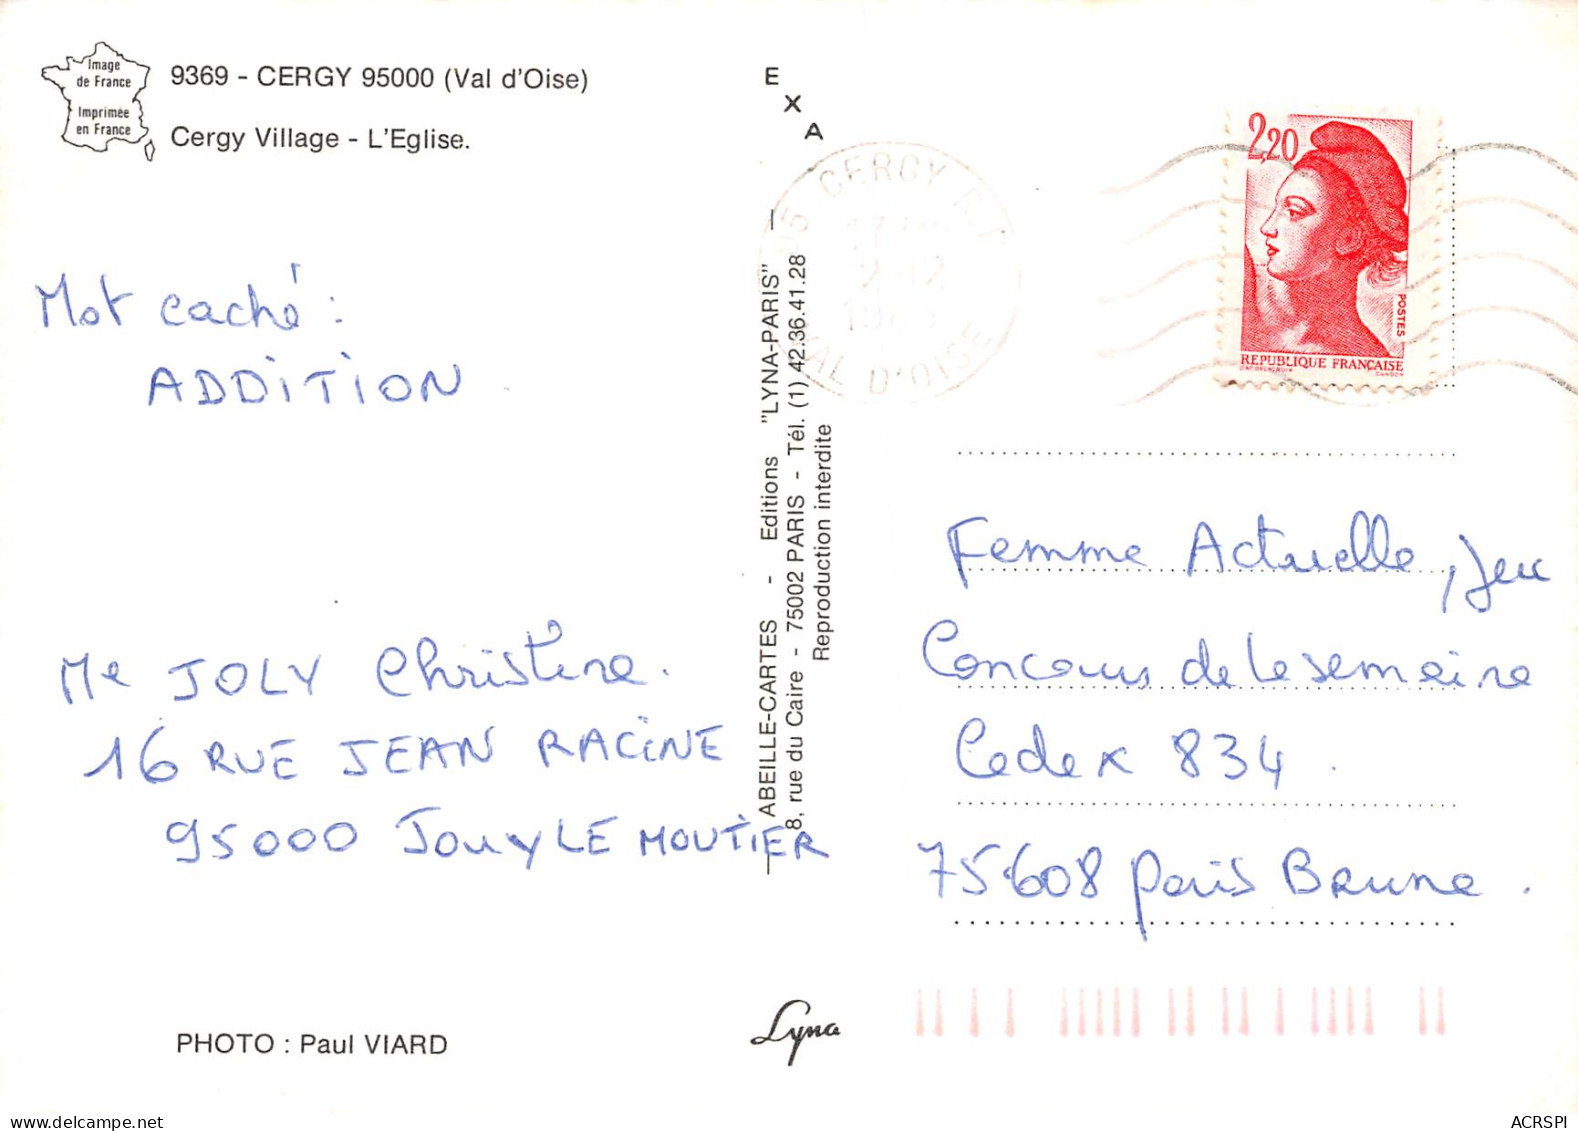 Image
de France
Imprimée
en France
9369 - CERGY 95000 (Val d'Oise)
Cergy Village - L'Eglise.
Mot caché :
ADDITION
Me JOLY Christine.
16 RUE JEAN RACINE
95000 JOUY LE MOUTIER
PHOTO : Paul VIARD
EXA
ABEILLE-CARTES - Editions "LYNA-PARIS"
8, rue du Caire - 75002 PARIS - Tél. (1) 42.36.41.28
Reproduction interdite
Lyna
95 CERGY
VAL D'OISE
2,20
POSTES
REPUBLIQUE FRANÇAISE
Femme Actuelle, Jeu
Concours de la semaine
Cedex 834.
75608 Paris Brune.
ACRSPI